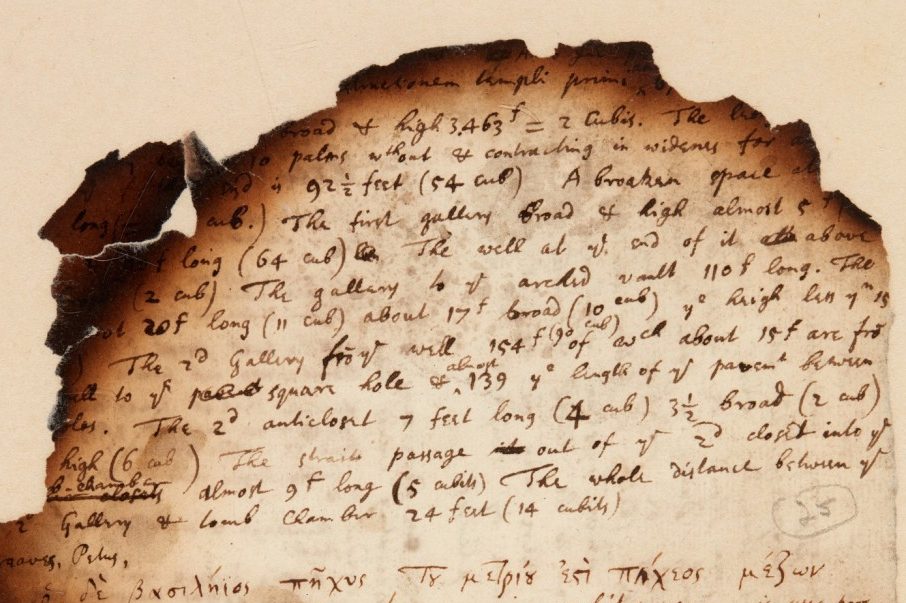 templi primi
broad & high 3.463f = 2 Cubits. The
10 palms wthout & contracting in widenes for
is 92½ feet (54 cub) A broaken space
long cub.) The first gallery broad & high almost 5f
long (64 cub) The well at ye end of it above
(2 cub) The gallery to ye arched vault 110f long. The
20f long (11 cub) about 17f broad (10 cub) ye heigh less yn 15
The 2d Gallery frō ye well 154f (90 cub) of wch about 15f are frō
to ye square hole & almost 139 ye length of ye pavemt between
The 2d anticloset 7 feet long (4 cub) 3½ broad (2 cub)
high (6 cub) The strait passage out of ye 2d closet into ye
b-chamber almost 9f long (5 cubits) The whole distance between ye
2d Gallery & tomb chamber 24 feet (14 cubits)
Petus,
δὲ βασιλήϊος πῆχυς τοῦ μετρίου ἐστὶ πήχεος μέζων
25